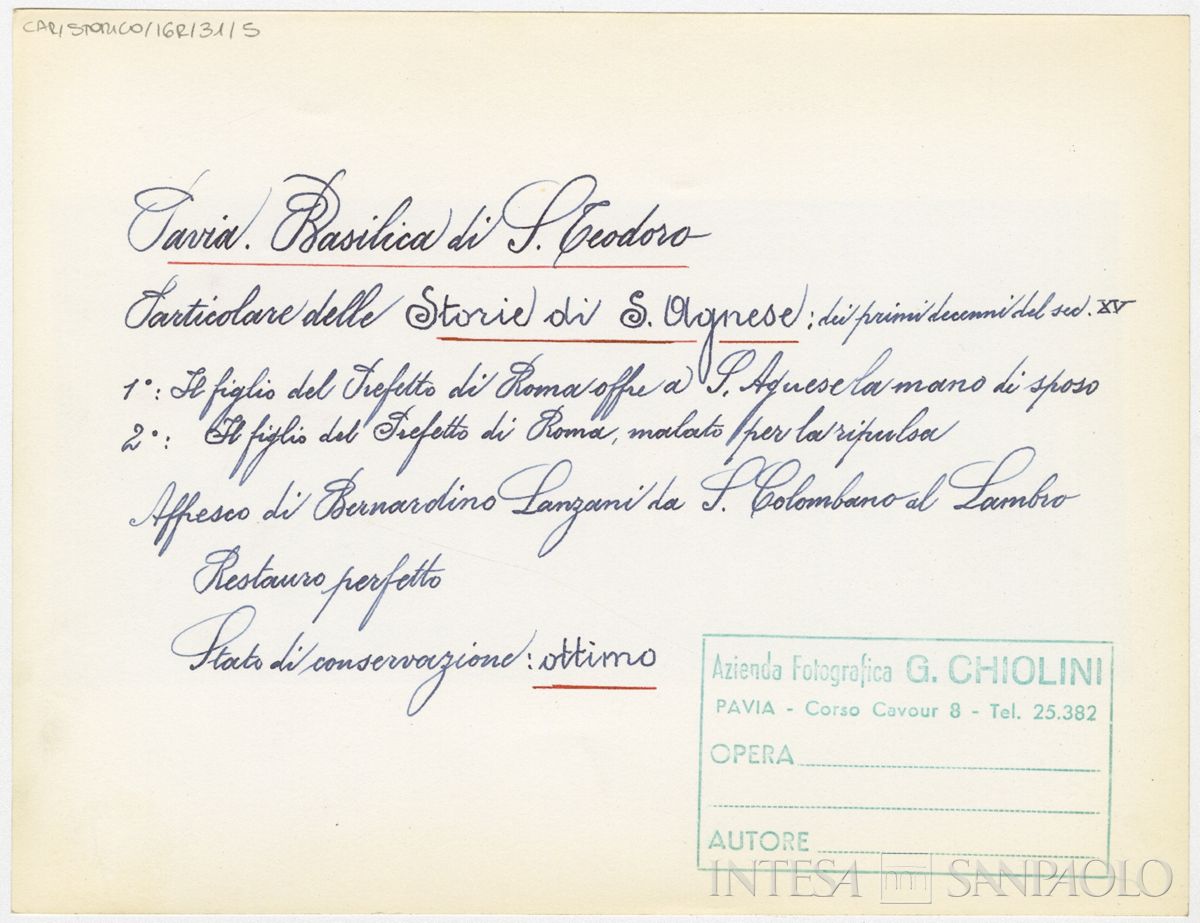 CAR/STORICO/16R/31/5
Pavia. Basilica di S. Teodoro
Particolare delle Storie di S. Agnese: dei primi decenni del sec. XV
1°: Il figlio del Prefetto di Roma offre a S. Agnese la mano di sposo
2°: Il figlio del Prefetto di Roma, malato per la ripulsa
Affresco di Bernardino Lanzani da S. Colombano al Lambro
Restauro perfetto
Stato di conservazione: ottimo
Azienda Fotografica G. CHIOLINI
PAVIA - Corso Cavour 8 - Tel. 25.382
OPERA
AUTORE
INTESA SANPAOLO